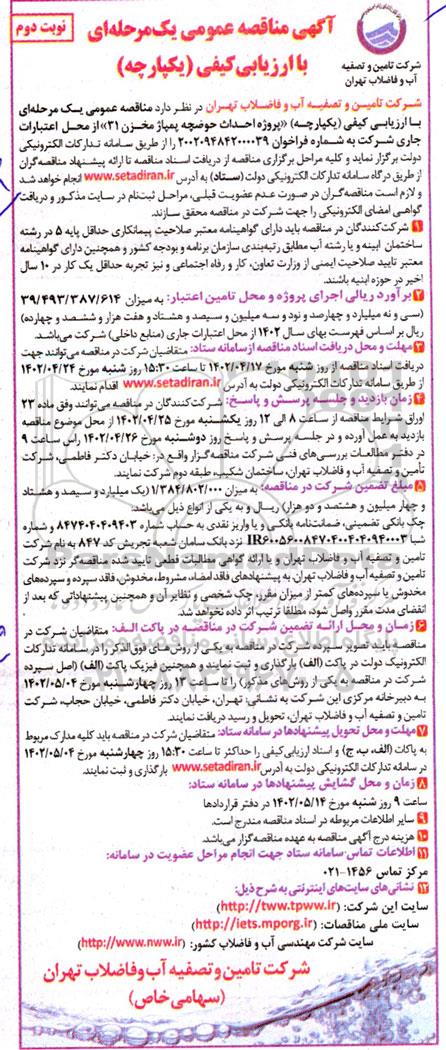 آگهی مناقصه عمومی یک‌مرحله‌ای
نوبت دوم
با ارزیابی کیفی (یکپارچه)
شرکت تامین و تصفیه
آب و فاضلاب تهران
شرکت تامیـن و تصفیـه آب و فاضـلاب تهـران در نظـر دارد مناقصه عمومی یـک مرحله‌ای
بـا ارزیابـی کیفی (یکپارچـه) «پروژه احداث حوضچه پمپاژ مخـزن ۳۱» از محل اعتبارات
جاری شرکت به شماره فراخوان ۲۰۰۲۰۹۴۸۴۲۰۰۰۰۳۹ را از طریق سـامانه تـدارکات الکترونیکی
دولت برگزار نماید و کلیه مراحل برگزاری مناقصه از دریافت اسناد مناقصه تا ارائه پیشنهاد مناقصه‌گران
از طریق درگاه سامانه تدارکات الکترونیکی دولت (ستاد) به آدرس www.setadiran.ir انجام خواهد شد
و لازم اسـت مناقصه‌گـران در صورت عدم عضویت قبلـی، مراحل ثبت‌نام در سـایت مذکـور و دریافت
گواهـی امضای الکترونیکی را جهت شـرکت در مناقصه محقق سـازند.
۱ شرکت‌کنندگان در مناقصه باید دارای گواهینامه معتبر صلاحیت پیمانکاری حداقل پایه ۵ در رشته
ساختمان ابنیه و یا رشته آب مطابق رتبه‌بندی سازمان برنامه و بودجه کشور و همچنین دارای گواهینامه
معتبر تایید صلاحیت ایمنی از وزارت تعاون، کار و رفاه اجتماعی و نیز تجربه حداقل یک کار در ۱۰ سال
اخیر در حوزه ابنیه باشند.
۲ برآورد ریالی اجرای پروژه و محل تامین اعتبار: به میزان ۳۹/۴۹۳/۳۸۷/۶۱۴
(سی و نه میلیارد و چهارصد و نود و سه میلیون و سیصد و هشتاد و هفت هزار و ششصد و چهارده)
ریال بر اساس فهرست بهای سال ۱۴۰۲ از محل اعتبارات جاری (منابع داخلی) شرکت می‌باشد.
۳ مهلت و محل دریافت اسناد مناقصه از سامانه ستاد: متقاضیان شرکت در مناقصه می‌توانند جهت
دریافت اسناد مناقصه از روز شنبه مورخ ۱۴۰۲/۰۴/۱۷ تا ساعت ۱۵:۳۰ روز شنبه مورخ ۱۴۰۲/۰۴/۲۴
از طریق سامانه تدارکات الکترونیکی دولت به آدرس www.setadiran.ir اقدام نمایند.
۴ زمان بازدید و جلسه پرسش و پاسخ: شرکت‌کنندگان در مناقصه می‌توانند وفق ماده ۲۳
اوراق شرایط مناقصه از ساعت ۸ الی ۱۲ روز یکشنبه مورخ ۱۴۰۲/۰۴/۲۵ از محل موضوع مناقصه
بازدید به عمل آورده و در جلسه پرسش و پاسخ روز دوشنبه مورخ ۱۴۰۲/۰۴/۲۶ راس ساعت ۹
در دفتـر مطالعات بررسی‌های فنـی شرکت مناقصه‌گزار واقع در: خیابان دکتـر فاطمی، شرکت
تأمین و تصفیه آب و فاضلاب تهران، ساختمان شکیب، طبقه دوم شرکت نمایند.
۵ مبلغ تضمین شرکت در مناقصه: به میزان ۱/۳۸۴/۸۰۲/۰۰۰ (یک میلیارد و سـیصد و هشتاد
و چهار میلیون و هشتصد و دو هزار) ریـال و به یکی از انواع ذیل می‌باشد:
چک بانکی تضمینی، ضمانت‌نامه بانکی و یا واریز نقدی به حساب شماره ۸۴۷۴۰۴۰۴۰۹۴۰۳ و شماره
شبا IR۶۰۰۵۶۰۰۸۴۷۴۰۰۴۰۴۰۹۴۰۰۳ نزد بانک سامان شعبه تجریش کد ۸۴۷ به نام شرکت
تامین و تصفیه آب و فاضلاب تهران و یا ارائه گواهی مطالبات قطعی تایید شده مناقصه‌گر نزد شرکت
تامین و تصفیه آب و فاضلاب تهران به پیشنهادهای فاقد امضاء، مشروط، مخدوش، فاقد سپرده و سپرده‌های
مخدوش یا سپرده‌های کمتر از میزان مقرر، چک شخصی و نظایر آن و همچنین پیشنهاداتی که بعد از
انقضای مدت مقرر واصل شود، مطلقا ترتیب اثر داده نخواهد شد.
۶ زمـان و محـل ارائـه تضمین شـرکت در مناقصـه در پاکت الـف: متقاضیان شرکت در
مناقصه بایـد تصویر سـپرده شـرکت در مناقصه به یکی از روش‌های فوق‌الذکر را در سـامانه تدارکات
الکترونیک دولت در پاکت (الف) بارگذاری و ثبت نمایند و همچنین فیزیک پاکت (الف) (اصل سپرده
شرکت در مناقصه به یکی از روش‌های مذکور) را تا ساعت ۱۳ روز چهارشنبه مورخ ۱۴۰۲/۰۵/۰۴
به دبیرخانه مرکزی این شرکت به نشانی: تهران، خیابان دکتر فاطمی، خیابان حجاب، شرکت
تامین و تصفیه آب و فاضلاب تهران، تحویل و رسید دریافت نمایند.
۷ مهلت و محل تحویل پیشنهادها در سامانه ستاد: متقاضیان شرکت در مناقصه باید کلیه مدارک مربوط
به پاکات (الف، ب، ج) و اسناد ارزیابی کیفی را حداکثر تا ساعت ۱۵:۳۰ روز چهارشنبه مورخ ۱۴۰۲/۰۵/۰۴
در سامانه تدارکات الکترونیکی دولت به آدرس www.setadiran.ir بارگذاری و ثبت نمایند.
۸ زمان و محل گشایش پیشنهادها در سامانه ستاد:
ساعت ۹ روز شنبه مورخ ۱۴۰۲/۰۵/۱۴ در دفتر قراردادها
۹ سایر اطلاعات مربوطه در اسناد مناقصه مندرج است.
۱۰ هزینه درج آگهی مناقصه به عهده مناقصه‌گزار می‌باشد.
۱۱ اطلاعات تماس سامانه ستاد جهت انجام مراحل عضویت در سامانه:
مرکز تماس ۱۴۵۶-۰۲۱
۱۲ نشانی‌های سایت‌های اینترنتی به شرح ذیل:
سایت این شرکت: (http://tww.tpww.ir)
سایت ملی مناقصات: (http://iets.mporg.ir)
سایت شرکت مهندسی آب و فاضلاب کشور: (http://www.nww.ir)
شرکت تامین و تصفیه آب و فاضلاب تهران
(سهامی خاص)